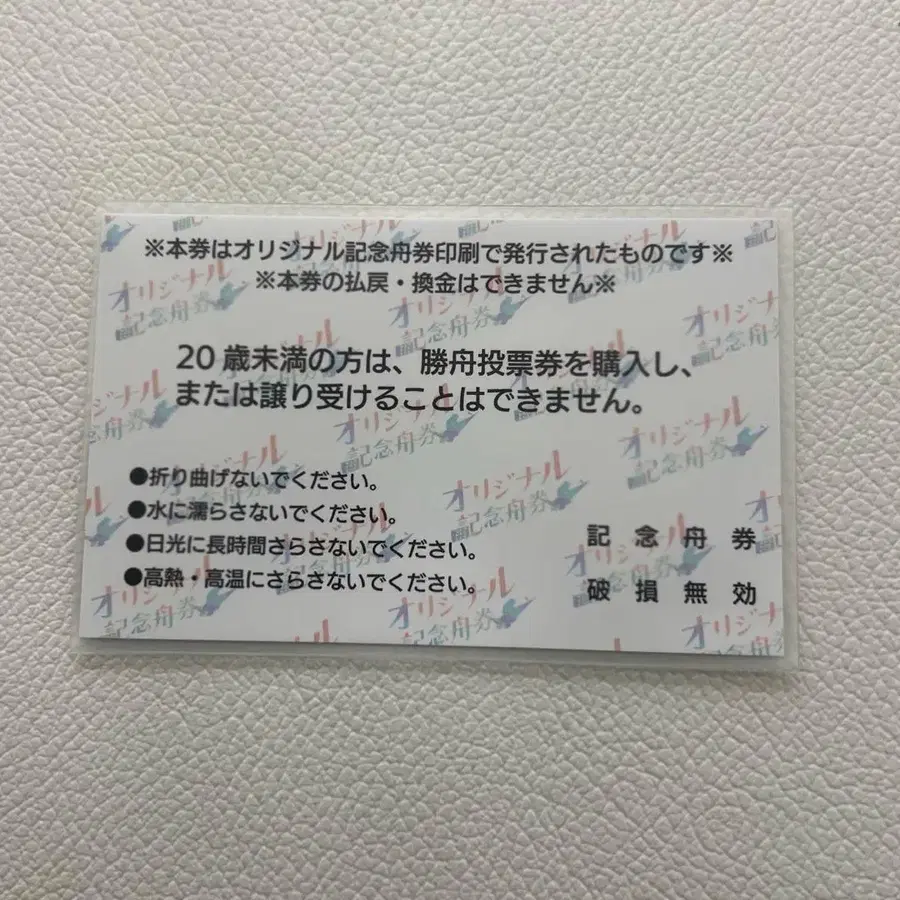 ※本券はオリジナル記念舟券印刷で発行されたものです※
※本券の払戻・換金はできません※
20歳未満の方は、勝舟投票券を購入し、
または譲り受けることはできません。
●折り曲げないでください。
●水に濡らさないでください。
●日光に長時間さらさないでください。
●高熱・高温にさらさないでください。
記念舟券
破損無効
オリジナル
記念舟券